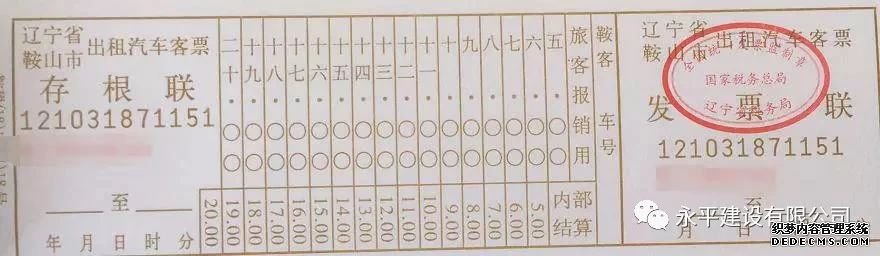 辽宁省
鞍山市
出租汽车客票
存根联
121031871151
至
年 月 日 时 分
二十·〇〇
十九·〇〇
十八·〇〇
十七·〇〇
十六·〇〇
十五·〇〇
十四·〇〇
十三·〇〇
十二·〇〇
十一·〇〇
十·〇〇
九·〇〇
八·〇〇
七·〇〇
六·〇〇
五·〇〇
旅客报销用
20.00
19.00
18.00
17.00
16.00
15.00
14.00
13.00
12.00
11.00
10.00
9.00
8.00
7.00
6.00
5.00
内部
结算
鞍客
车号
辽宁省
鞍山市
出租汽车客票
全国统一发票监制章
国家税务总局
辽宁省税务局
发票联
121031871151
至
月 日 时 分
永平建设有限公司
织梦内容管理系统
DEDECMS.COM